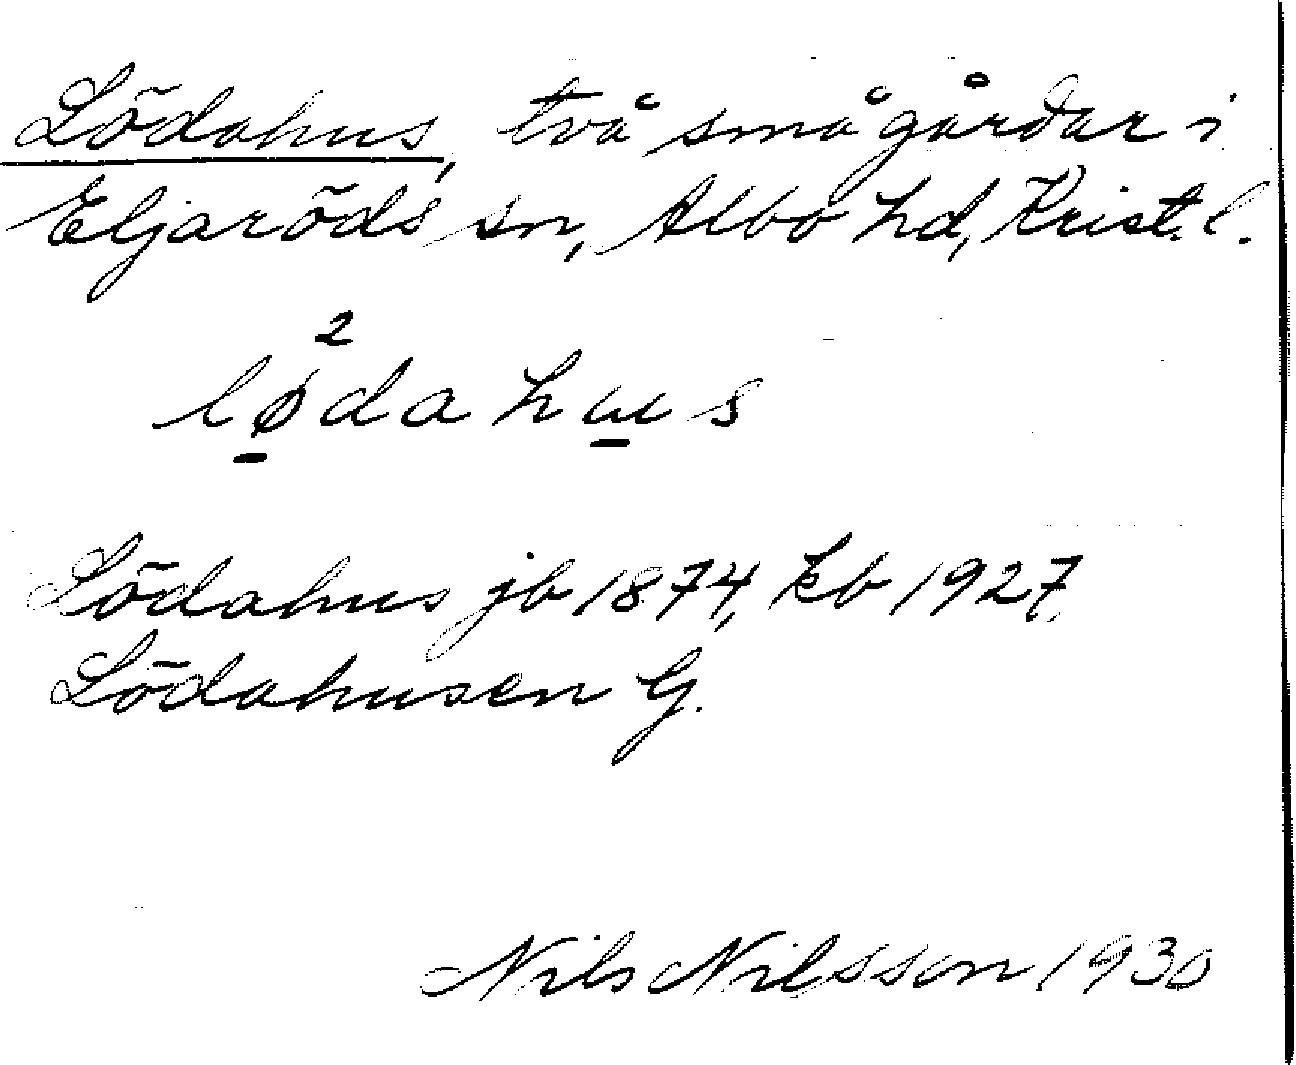 Lödahus, två små gårdar i
Eljaröds sn, Albo hd, Krist. l.
2
lø̱daẖu̱s
Lödahus jb 1874, kb 1927,
Lödahusen G.
Nils Nilsson 1930